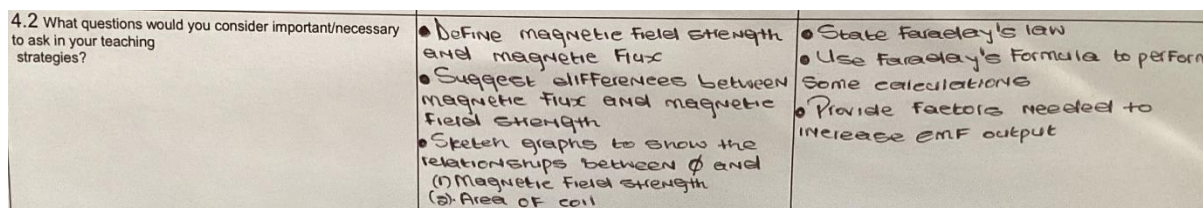 4.2 What questions would you consider important/necessary
to ask in your teaching
strategies?
• Define magnetic field strength
and magnetic flux
• Suggest differences between
magnetic flux and magnetic
field strength
• Sketch graphs to show the
relationships between ϕ and
(1) Magnetic field strength
(2). Area of coil
• State Faraday's law
• Use Faraday's Formula to perform
some calculations
• Provide factors needed to
increase emf output